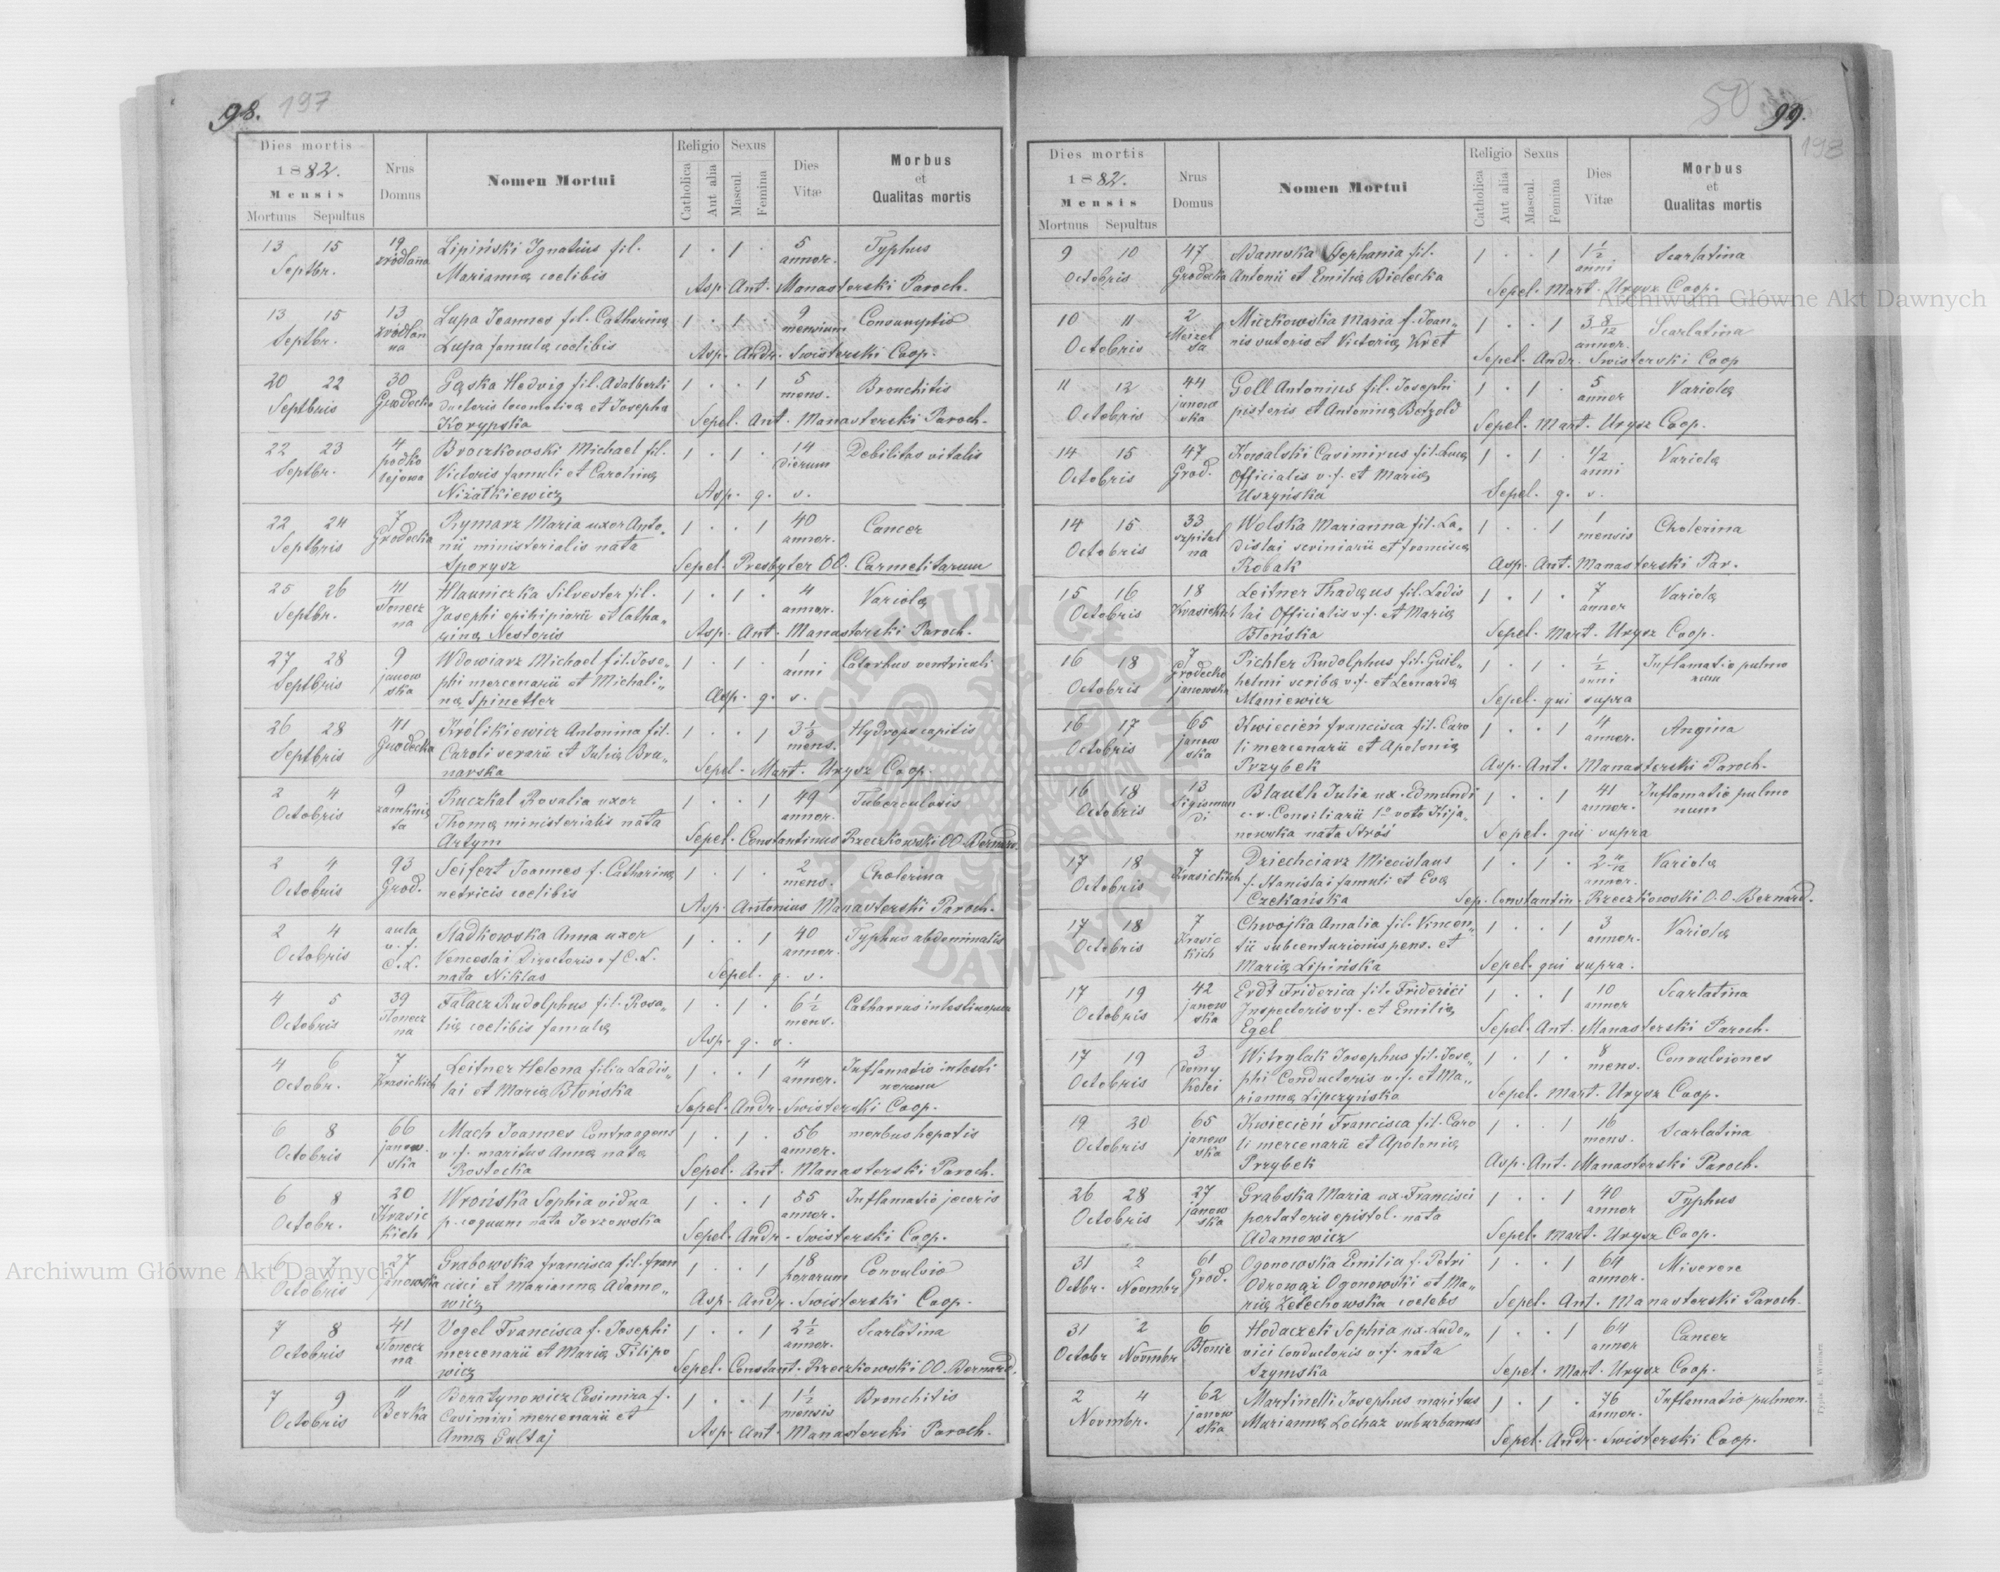 98. 197
Dies mortis
1882.
Mensis
Mortuus Sepultus
Nrus Domus
Nomen Mortui
Religio
Catholica
Aut alia
Sexus
Mascul.
Femina
Dies Vitæ
Morbus
et
Qualitas mortis
13 15 19 Lipiński Ignatius fil. 1 . 1 . 5 Typhus
Septbr. źródlana Mariannæ coelibis annor.
Asp. Ant. Manasterski Paroch.
13 15 13 Lupa Joannes fil. Catharinæ 1 . 1 . 9 Consumptio
Septbr. źródlan na Lupa famulæ coelibis mensium
Asp. Andr. Swisterski Coop.
20 22 30 Gąska Hedvig fil. Adalberti 1 . . 1 5 Bronchitis
Septbris Grodecka ductoris locomotivæ et Josepha mens.
Korypska Sepel. Ant. Manasterski Paroch.
22 23 4 Broczkowski Michael fil. 1 . 1 . 14 Debilitas vitalis
Septbr. Victoris famuli et Carolinæ dierum
Niżałkiewicz Asp. q. s.
22 24 7 Rymarz Maria uxor Anto- 1 . . 1 40 Cancer
Septbris Grodecka nii ministerialis nata annor.
Sperysz Sepel. Presbyter OO. Carmelitarum
25 26 41 Hlauniczka Silvester fil. 1 . 1 . 4 Variola
Septbr. Słonecz na Josephi ephipiarii et Catha- annor.
rinæ Nestoris Asp. Ant. Manasterski Paroch.
27 28 9 Wdowiarz Michael fil. Jose- 1 . 1 . 1 Catarhus ventriculi
Septbris janow ska phi mercenarii et Michali- anni
næ Spinetter Asp. q. s.
26 28 41 Królikiewicz Antonina fil. 1 . . 1 3½ Hydrops capitis
Septbris Grodecka Caroli serarii et Juliæ Bru- mens.
narska Sepel. Mart. Urysz Coop.
2 4 9 Ruczkal Rosalia uxor 1 . . 1 49 Tuberculosis
Octobris zamknię ta Thomæ ministerialis nata annor.
Artym Sepel. Constantinus Rzeczkowski OO. Bernard.
2 4 93 Seifert Joannes f. Catharinæ 1 . 1 . 2 Cholerina
Octobris Grod. netricis coelibis mens.
Asp. Antonius Manasterski Paroch.
2 4 aula Sladkowska Anna uxor 1 . . 1 40 Typhus abdominalis
Octobris v. f. C. L. Venceslai Directoris v f C. L. annor.
nata Niklas Sepel. q. s.
4 5 39 Fałacz Rudolphus fil. Rosa- 1 . 1 . 6½ Catharrus intestinorum
Octobris Słonecz na liæ coelibis famulæ mens.
Asp. q. s.
4 6 7 Leitner Helena filia Ladis- 1 . . 1 4 Inflamatio intesti
Octobr. Krasickich lai et Mariæ Błońska annor. norum
Sepel. Andr. Swisterski Coop.
6 8 66 Mach Joannes Contraagens 1 . 1 . 56 morbus hepatis
Octobris janow ska v. f. maritus Annæ nata annor.
Rostocka Sepel. Ant. Manasterski Paroch.
6 8 20 Wrońska Sophia vidua 1 . . 1 55 Inflamatio jecoris
Octobr. Krasic kich p. coquum nata Jerzowska annor.
Sepel. Andr. Swisterski Coop.
6 7 27 Grabowska francisca fil. fran 1 . . 1 18 Convulsio
Octobris janowska cisci et Mariannæ Adamo- horarum
wicz Asp. Andr. Swisterski Coop.
7 8 41 Vogel Francisca f. Josephi 1 . . 1 2½ Scarlatina
Octobris Słonecz na mercenarii et Mariæ Filipo annor.
wicz Sepel. Constant. Rzeczkowski OO. Bernard.
7 9 11 Boratynowicz Casimira f. 1 . . 1 1½ Bronchitis
Octobris Berka Casimiri mercenarii et mensis
Annæ Pultaj Asp. Ant. Manasterski Paroch.
50 99. 198
Dies mortis
1882.
Mensis
Mortuus Sepultus
Nrus Domus
Nomen Mortui
Religio
Catholica
Aut alia
Sexus
Mascul.
Femina
Dies Vitæ
Morbus
et
Qualitas mortis
9 10 47 Adamska Stephania fil. 1 . . 1 1½ Scarlatina
Octobris Grodecka Antonii et Emiliæ Bielecka anni
Sepel. Mart. Urysz Coop.
10 11 2 Miczkowska Maria f. Joan- 1 . . 1 3 8/12 Scarlatina
Octobris nis sutoris et Victoriæ Kret annor.
Sepel. Andr. Swisterski Coop
11 12 44 Goll Antonius fil. Josephi 1 . 1 . 5 Variola
Octobris janow ska pistoris et Antoninæ Betzold annor
Sepel. Mart. Urysz Coop.
14 15 47 Kowalski Casimirus fil. Lucæ 1 . 1 . ½ Variola
Octobris Grod. Officialis v. f. et Mariæ anni
Uszyńska Sepel. q. s.
14 15 33 Wolska Marianna fil. La- 1 . . 1 1 Cholerina
Octobris szpital na dislai scriniarii et franciscæ mensis
Robak Asp. Ant. Manasterski Par.
15 16 18 Leitner Thadæus fil. Ladis 1 . 1 . 7 Variola
Octobris Krasickich lai Officialis v. f. et Mariæ annor
Błońska Sepel. Mart. Urysz Coop.
16 18 7 Pichler Rudolphus fil. Guil- 1 . 1 . ½ Inflamatio pulmo
Octobris Grodecko janowska helmi scribæ v. f. et Leonardæ anni num
Maniewicz Sepel. qui supra
16 17 65 Kwiecień francisca fil. Caro 1 . . 1 4 Angina
Octobris janow ska li mercenarii et Apoloniæ annor.
Przybek Asp. Ant. Manasterski Paroch.
16 18 13 Blauth Julia ux. Edmundi 1 . . 1 41 Inflamatio pulmo
Octobris Sigismun di c. r. Consiliarii 1º voto Kija- annor. num
nowska nata Stróś Sepel. qui supra
17 18 7 Dziechciarz Miecislaus 1 . 1 . 2 4/12 Variola
Octobris Krasickich f. Stanislai famuli et Evæ annor.
Czekańska Sep. Constantin. Rzeczkowski O.O. Bernard.
17 18 7 Chwojka Amalia fil. Vincen- 1 . . 1 3 Variola
Octobris Krasic kich tii subcenturionis pens. et annor.
Mariæ Lipińska Sepel. qui supra.
17 19 42 Erdt Friderica fil. Friderici 1 . . 1 10 Scarlatina
Octobris janow ska Inspectoris v. f. et Emiliæ annor
Egel Sepel. Ant. Manasterski Paroch.
17 19 3 Witrylak Josephus fil. Jose- 1 . 1 . 8 Convulsiones
Octobris Domy Kolei phi Conductoris v. f. et Ma- mens.
riannæ Lipczyńska Sepel. Mart. Urysz Coop.
19 20 65 Kwiecień Francisca fil. Caro 1 . . 1 16 Scarlatina
Octobris janow ska li mercenarii et Apoloniæ mens.
Przybek Asp. Ant. Manasterski Paroch.
26 28 27 Grabska Maria ux. Francisci 1 . . 1 40 Typhus
Octobris janow ska portatoris epistol. nata annor
Adamowicz Sepel. Mart. Urysz Coop.
31 2 61 Ogonowska Emilia f. Petri 1 . . 1 64 Miserere
Octbr. Novmbr Grod. Odrowąż Ogonowski et Ma- annor.
riæ Żelechowska coelebs Sepel. Ant. Manasterski Paroch.
31 2 6 Hodaczek Sophia ux. Ludo- 1 . . 1 64 Cancer
Octobr Novmbr Błonie vici Conductoris v. f. nata annor
Szymska Sepel. Mart. Urysz Coop.
2 4 62 Martinelli Josephus maritus 1 . 1 . 76 Inflamatio pulmon.
Novmbr. janow ska Mariannæ Lochaz suburbanus annor.
Sepel. Andr. Swisterski Coop.
Archiwum Główne Akt Dawnych
Archiwum Główne Akt Dawnych
ARCHIWUM GŁÓWNE AKT DAWNYCH